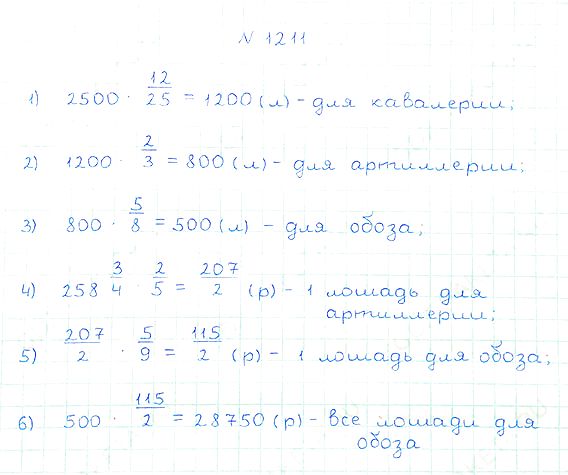 N 1211
1) 2500 · 12/25 = 1200 (л) - для кавалерии;
2) 1200 · 2/3 = 800 (л) - для артиллерии;
3) 800 · 5/8 = 500 (л) - для обоза;
4) 258 3/4 · 2/5 = 207/2 (р) - 1 лошадь для
артиллерии;
5) 207/2 · 5/9 = 115/2 (р) - 1 лошадь для обоза;
6) 500 · 115/2 = 28750 (р) - все лошади для
обоза